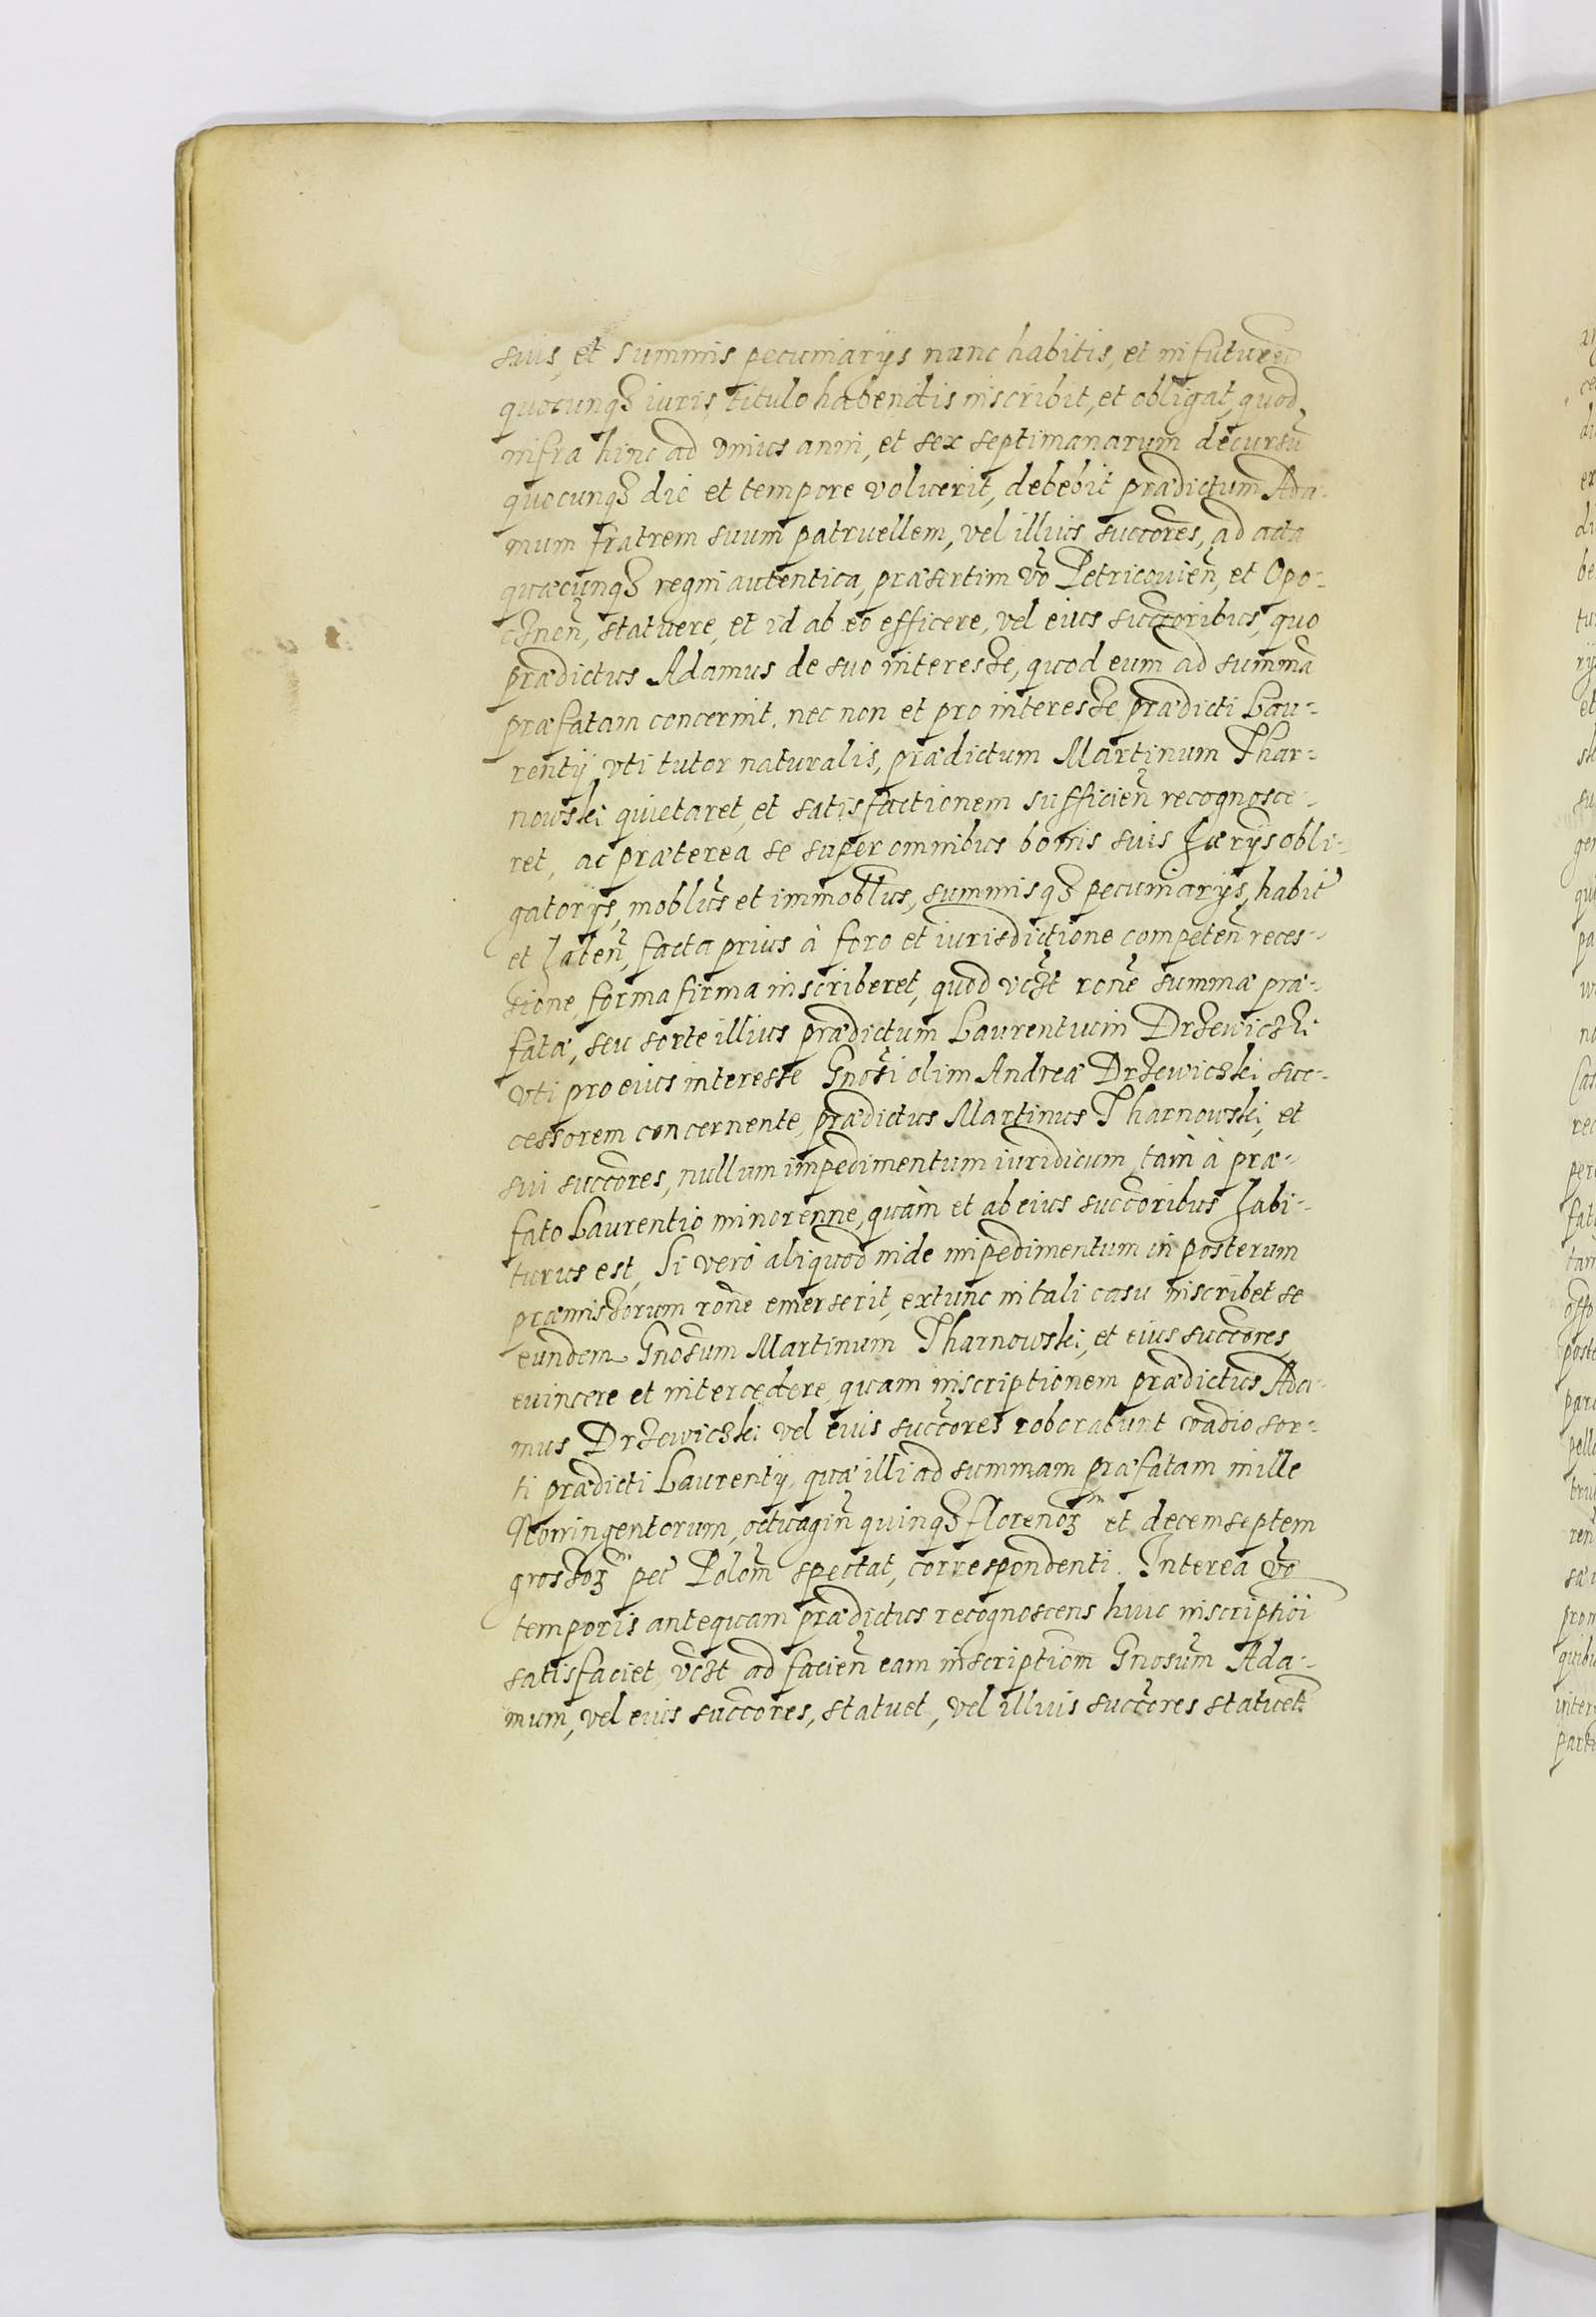 suis, et summis pecuniarijs nunc habitis, et in futurum
quocunqꝫ iuris titulo habendis inscribit, et obligat, quod
infra hinc ad vnius anni, et sex septimanarum decursū
quocunqꝫ die et tempore voluerit, debebit prædictum Ada-
mum fratrem suum patruellem, vel illius succōres, ad acta
quæcunqꝫ regni autentica, præsertim vō Petricouień, et Opo-
cznoń, statuere, et id ab eo efficere, vel eius succōribus, quo
prædictus Adamus de suo interesse, quod eum ad summā
præfatam concernit. nec non et pro interesse prædicti Lau-
rentij vti tutor naturalis, prædictum Martinum Thar-
nowski quietaret, et satisfactionem sufficień recognosce-
ret, ac præterea se super omnibus bonis suis hærijs obli-
gatorijs, moblib́s et immoblib́s, summisqꝫ pecuniarijs, habit̄
et haben̄, facta prius à foro et iurisdictione competeń reces-
sione, forma firma inscriberet, quod vczt rōne summæ præ-
fatæ, seu sorte illius prædictum Laurentium Drzewiczki
vti pro eius interesse Gnosi olim Andreæ Drzewiczki suc-
cessorem concernente, prædictus Martinus Tharnowski, et
sui succōres, nullum impedimentum iuridicum, tam à præ-
fato Laurentio minorenne, quàm et ab eius succōribus habi-
turus est, Si verò aliquod inde impedimentum in posterum
præmissorum rōne emerserit, extunc in tali casu inscribet se
eundem Gnosum Martinum Tharnowski, et eius succōres,
euincere et intercedere, quam inscriptionem prædictus Ada-
mus Drzewiczki vel eius succōres roborabunt vadio sor-
ti prædicti Laurentij, quæ illi ad summam præfatam mille
Noningentorum, octuagiń quinqꝫ florenoꝝ et decem septem
grossoꝝ pec̄ Polōm spectat, correspondenti. Interea vō
temporis antequam prædictus recognoscens huic inscriptiōi
satisfaciet, vczt ad facień eam inscriptiōm Gnosum Ada-
mum, vel eius succōres, statuet, vel illius succōres statuet